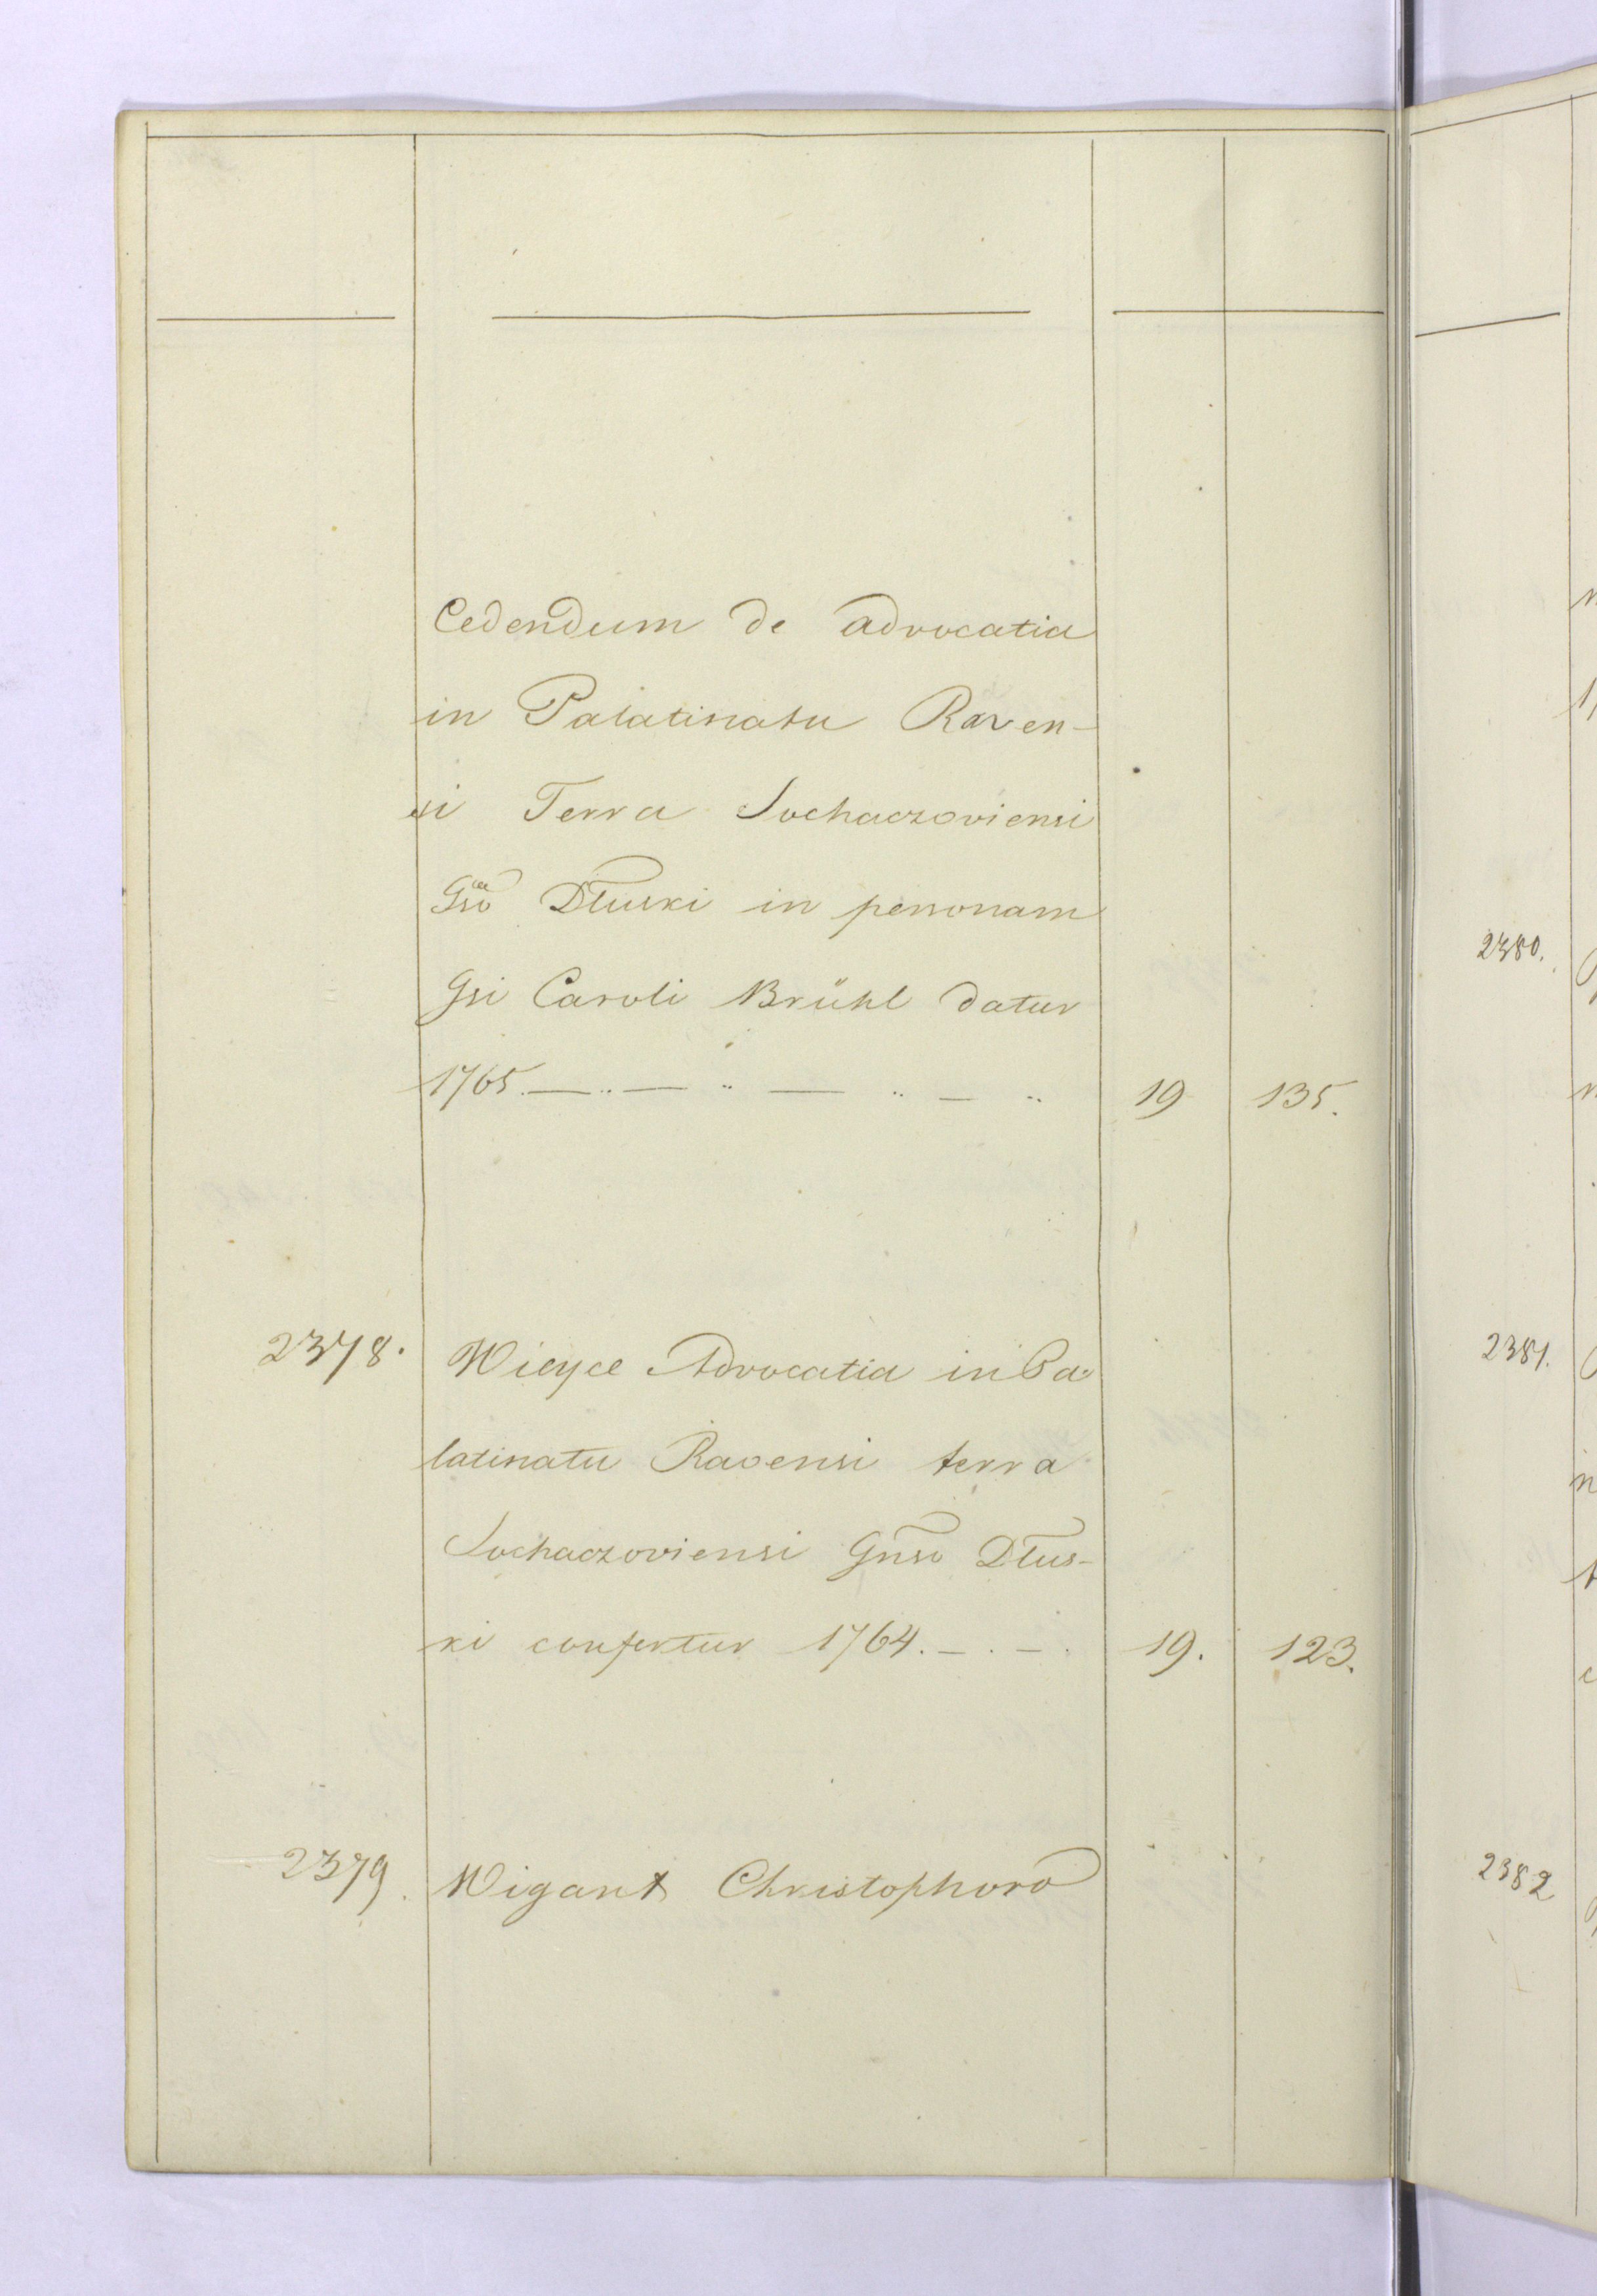 Cedendum de advocatia
in Palatinatu Raven-
si Terra Sochaczoviensi
Gso Dłuski in personam
Gsi Caroli Brühl datur
1765. — .. — .. — .. — .. 19 135.
2378. Wieyce Advocatia in Pa-
latinatu Ravensi terra
Sochaczoviensi Gnso Dłus-
ki confertur 1764. — . — . 19. 123.
2379. Wigant Christophoro
2380.
2381.
2382